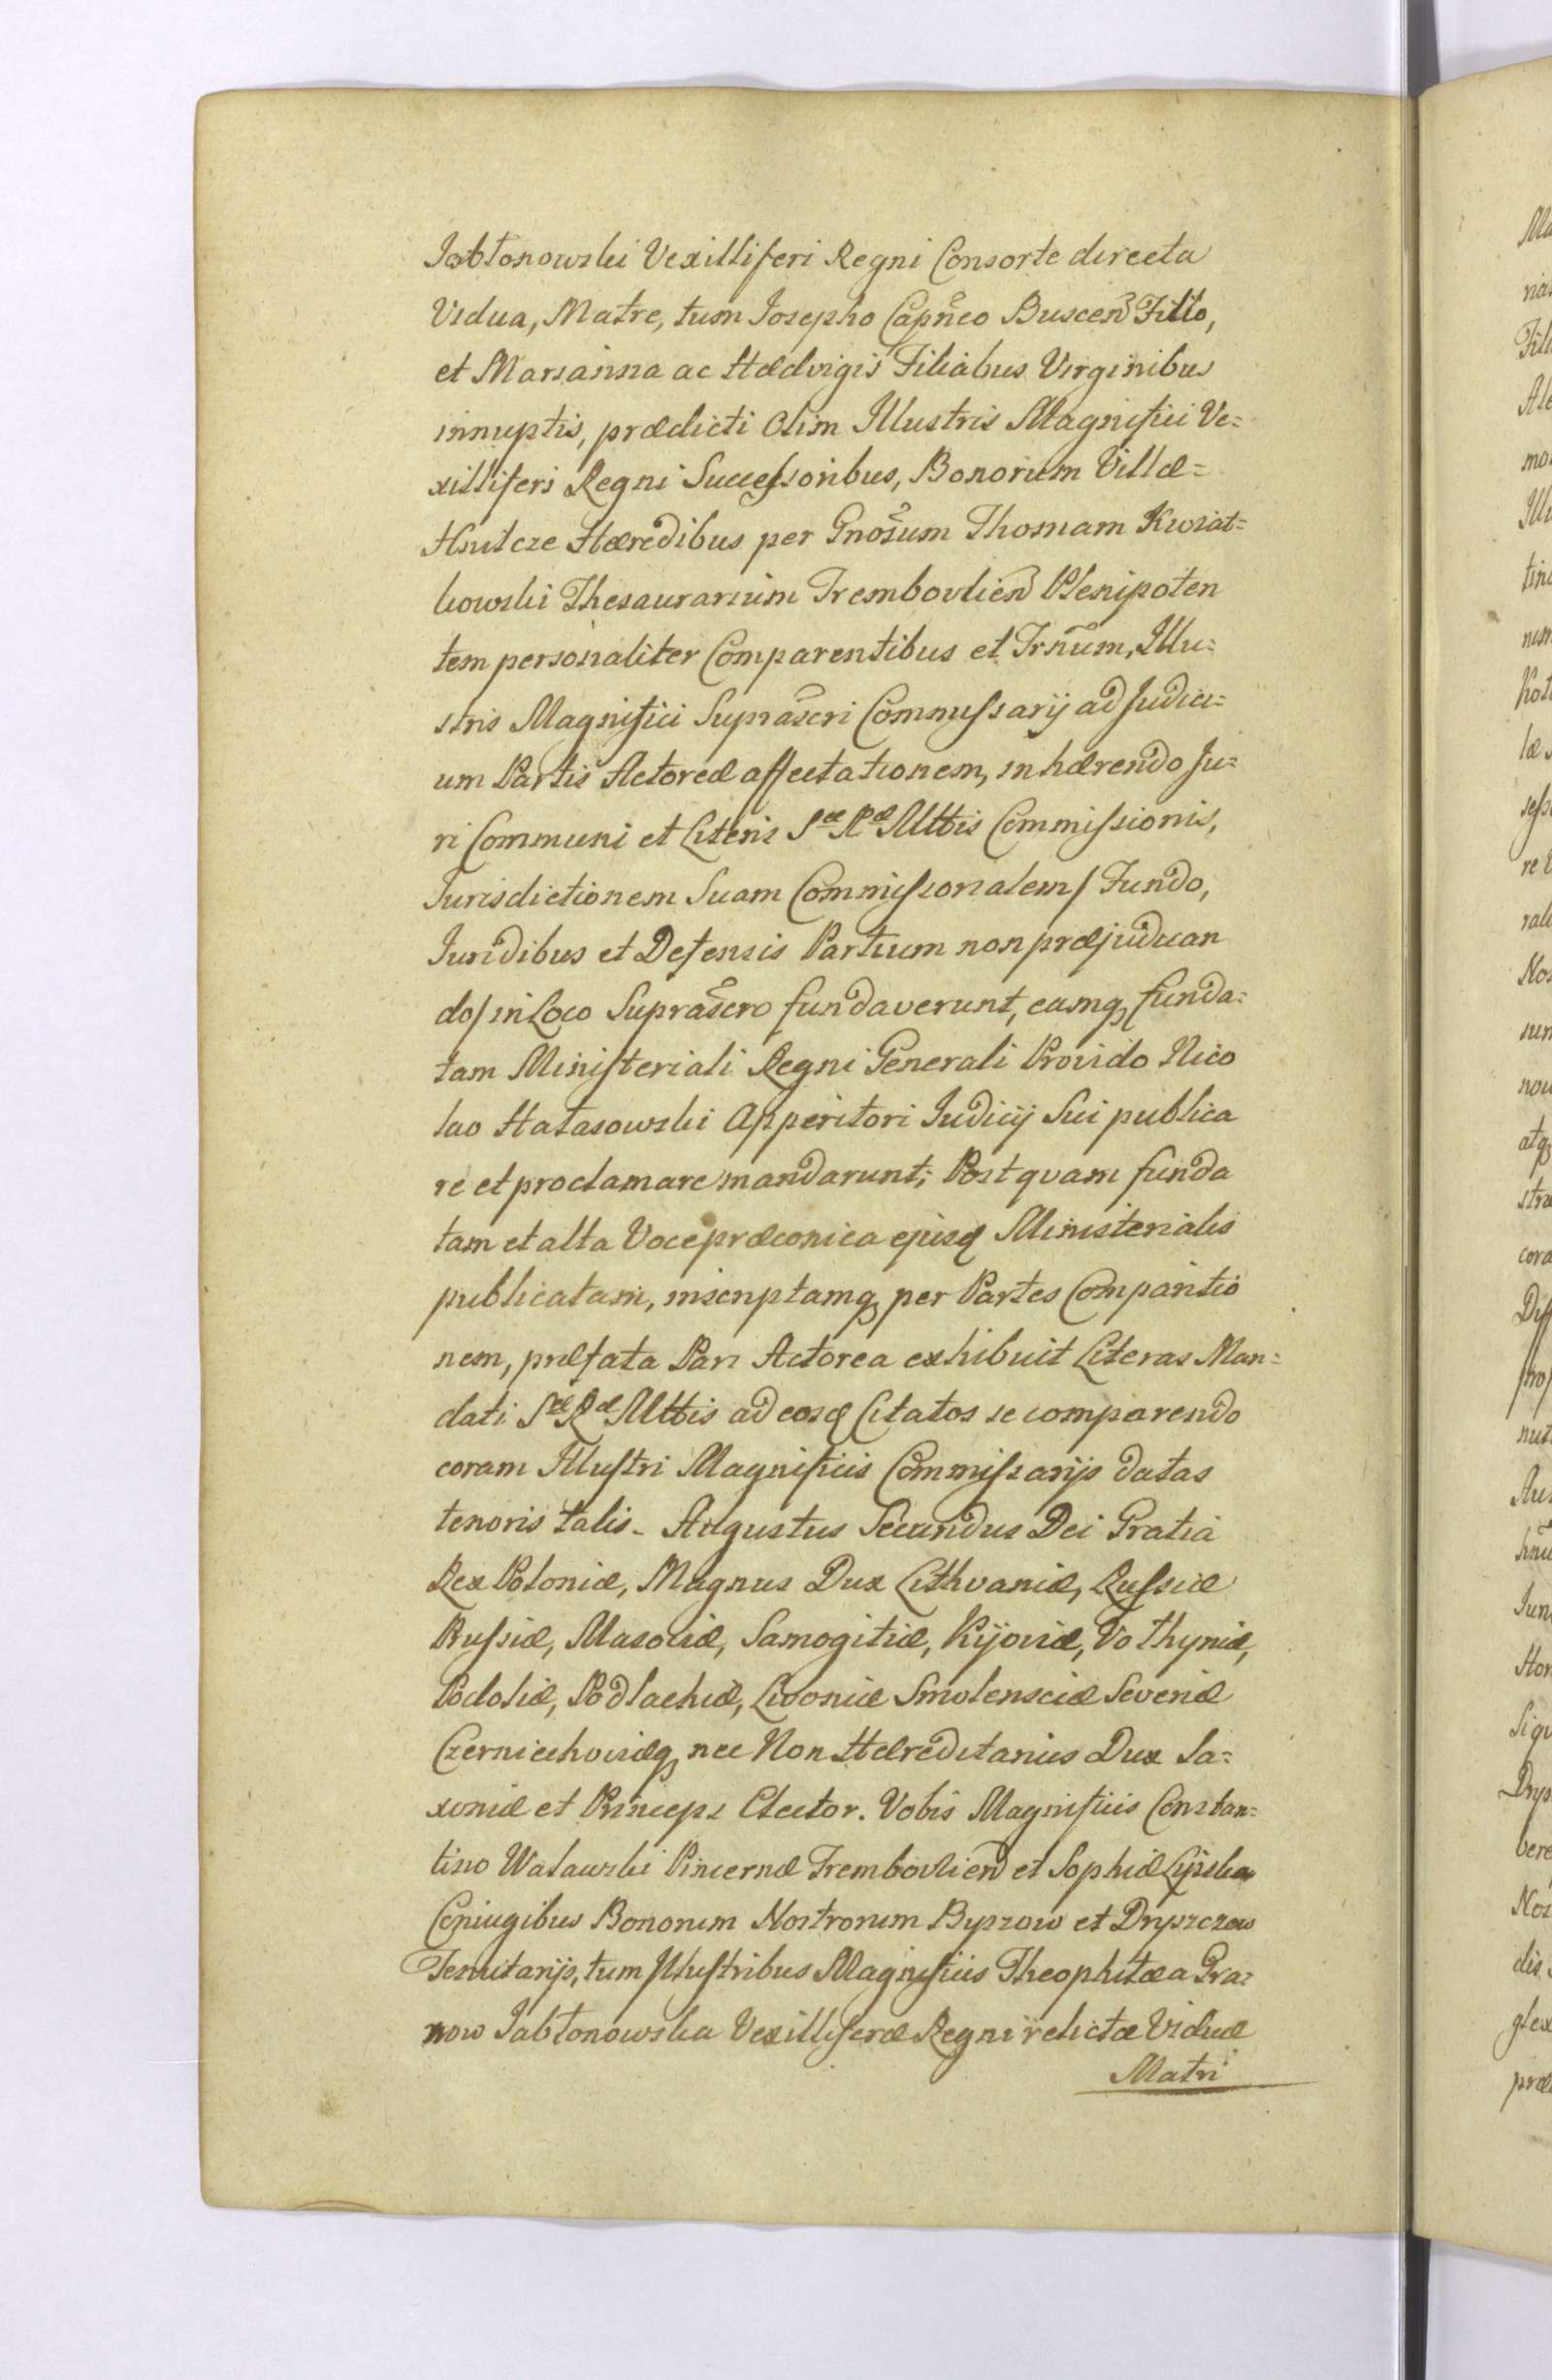 Jabłonowski Vexilliferi Regni Consorte directa
Vidua, Matre, tum Josepho Capñeo Buscen̄ Filio,
et Marianna ac Hædvigis Filiabus Virginibus
innuptis, prædicti Olim Illustris Magnifici Ve=
xilliferi Regni Successoribus, Bonorum Villæ=
Hnilcze Hæredibus per Gnosum Thomam Kwiat=
kowski Thesaurarium Trembovlien̄ Plenipoten
tem personaliter Comparentibus et Trñum, Illu=
stris Magnifici Suprascri Commissarij ad Judici=
um Partis Actoreæ affectationem, inhærendo Ju=
ri Communi et Literis Sæ Ræ Mttis Commissionis,
Jurisdictionem Suam Commissorialem / Fundo,
Juridibus et Defensis Partium non præjudican
do / in Loco Suprascro fundaverunt, eamq funda=
tam Ministeriali Regni Generali Provido Nico
lao Hałasowski Apperitori Judicij Sui publica
re et proclamare mandarunt; Post quam funda
tam et alta Voce præconica ejusq Ministerialis
publicatam, inscriptamq per Partes Comparitio
nem, præfata Pars Actorea exhibuit Literas Man=
dati Sæ Ræ Mttis ad eosq Citatos se comparendo
coram Illustri Magnificis Commissarijs datas
tenoris talis. Augustus Secundus Dei Gratia
Rex Poloniæ, Magnus Dux Lithvaniæ, Russiæ
Prussiæ, Masoviæ, Samogitiæ, Kijoviæ, Vołhyniæ,
Podoliæ, Podlachiæ, Livoniæ Smolensciæ Severiæ
Czerniechoviæq, nec Non Hæreditarius Dux Sa=
xoniæ et Princeps Elector. Vobis Magnificis Constan=
tino Watawski Pincernæ Trembovlien̄ et Sophiæ Lipska
Coniugibus Bonorum Nostrorum Byszow et Dryszczow
Tenutarijs, tum Illustribus Magnificis Theophilæ a Gra=
now Jabłonowska Vexilliferæ Regni relictæ Viduæ
Matri